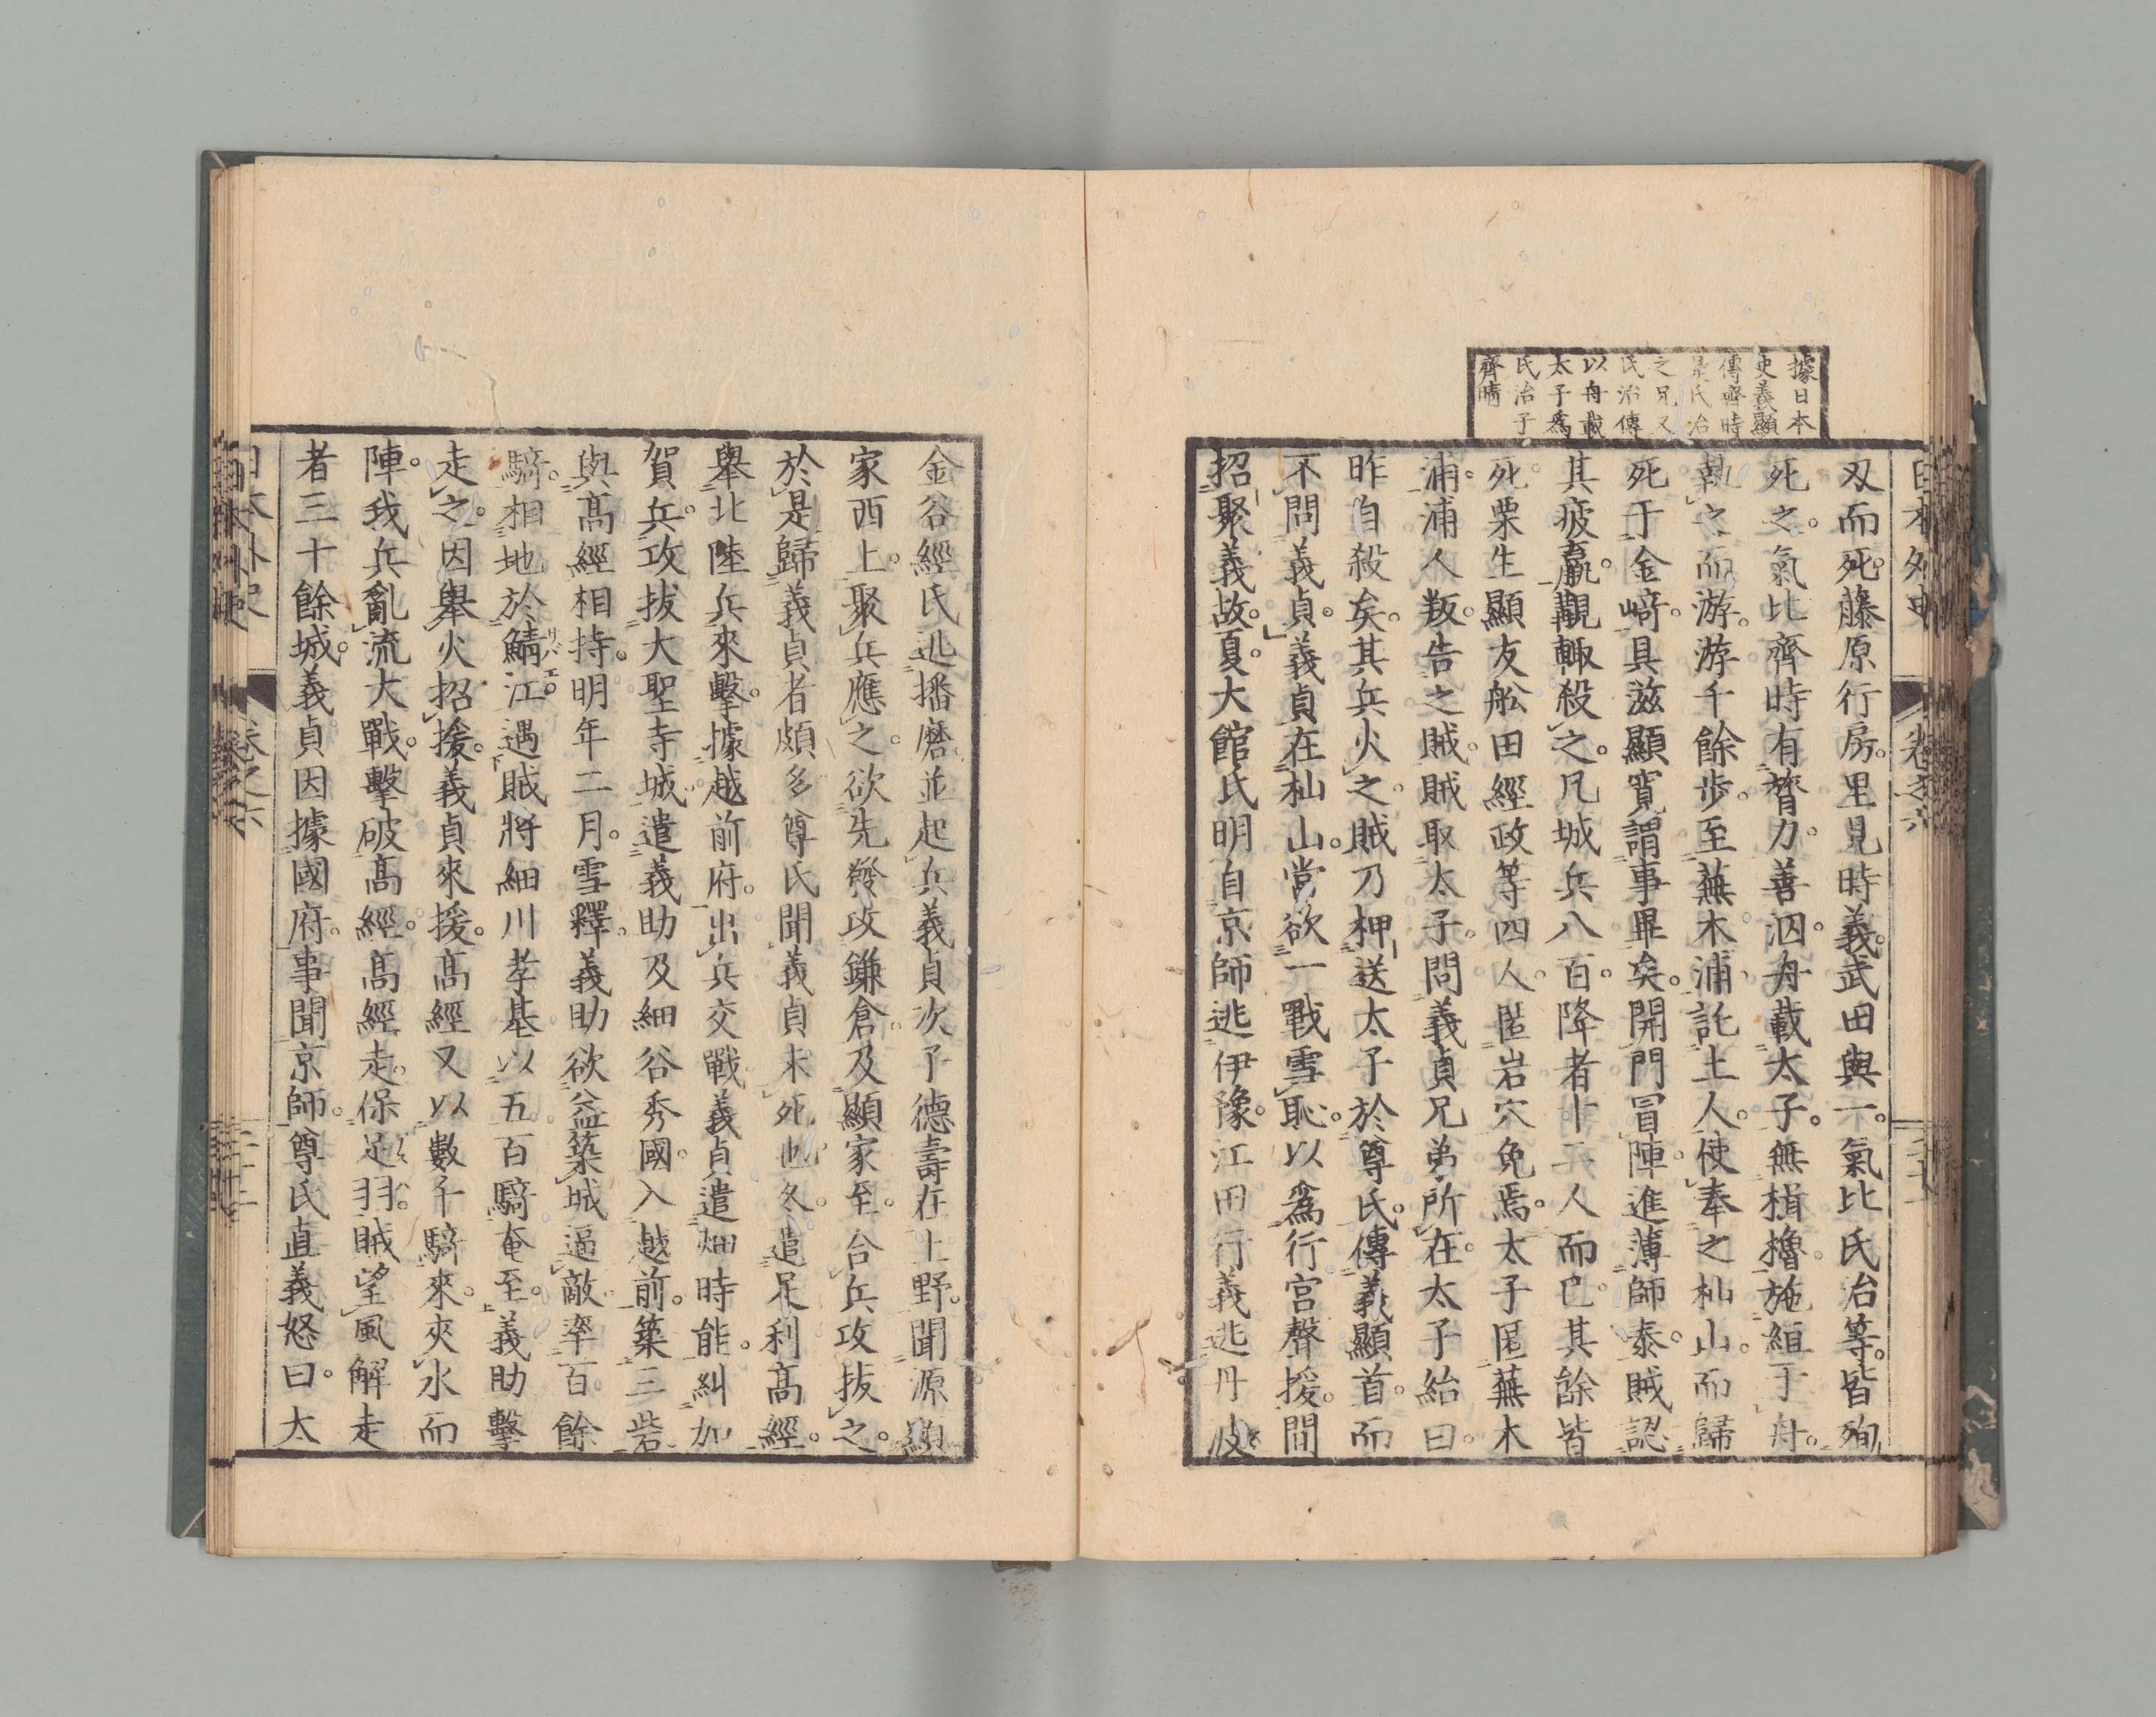 據日本
史義顯
傳齊時
是氏治
之兄又
氏治傳
以舟載
太子爲
氏治子
齊晴
日本外史
卷之六
刄而死。藤原行房。里見時義。武田與一。氣比氏治等。皆殉
死之。氣比齊時有膂力。善泅。舟載太子。無楫櫓。施絙于舟。
執之而游。游千餘步。至蕪木浦。託土人。使奉之杣山。而歸
死于金﨑。具滋顯寛謂事畢矣。開門冒陣。進薄師泰。賊認
其疲羸。覯輙殺之。凡城兵八百。降者十二人而已。其餘皆
死。栗生顯友舩田經政等四人。匿岩穴免焉。太子匿蕪木
浦。浦人叛告之賊。賊取太子。問義貞兄弟所在。太子紿曰。
昨自殺矣。其兵火之。賊乃押送太子於尊氏。傳義顯首。而
不問義貞。義貞在杣山。常欲一戰雪恥。以爲行宮聲援。間
招聚義故。夏。大館氏明自京師逃伊豫。江田行義逃丹波。
金谷經氏逃播磨。並起兵。義貞次子德壽在上野。聞源顯
家西上。聚兵應之。欲先發攻鎌倉。及顯家至。合兵攻拔之。
於是歸義貞者頗多。尊氏聞義貞未死也。冬。遣足利髙經。
舉北陸兵來擊。據越前府。出兵交戰。義貞遣畑時能。糾加
賀兵。攻拔大聖寺城。遣義助及細谷秀國。入越前。築三砦。
與髙經相持。明年二月。雪釋。義助欲益築城逼敵。率百餘
騎。相地於鯖江。遇賊將細川孝基以五百騎奄至。義助擊
走之。因舉火招援。義貞來援。髙經又以數千騎來。夾水而
陣。我兵亂流大戰。擊破髙經。髙經走。保足羽。賊望風解走
者三十餘城。義貞因據國府。事聞京師。尊氏直義怒曰。太
日本外史
卷之六